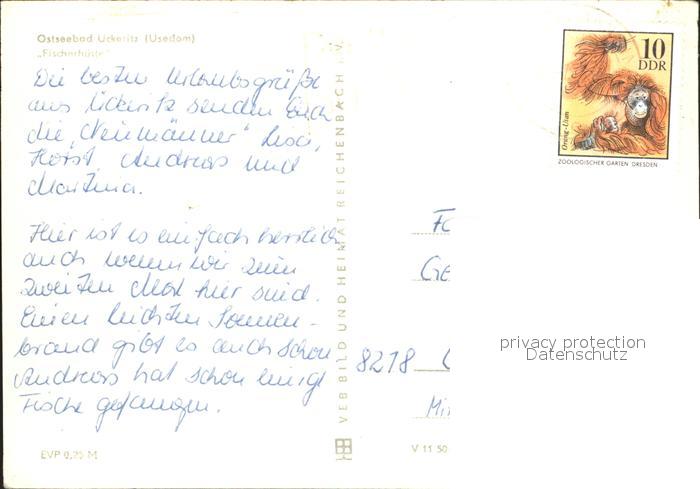 Ostseebad Uckeritz (Usedom)
„Fischerhütte“
Die besten Urlaubsgrüße
aus Ückeritz senden Euch
die „Neumänner“
Horst, Andreas und
Martina.
Hier ist es einfach herrlich
auch wenn wir zum
zweiten Mal hier sind.
Einen leichten Sonnen-
brand gibt es auch schon
Andreas hat schon einige
Fische gefangen.
EVP 0,20 M
VEB BILD UND HEIMAT REICHENBACH i. V.
V 11 50
10
DDR
Orang-Utan
ZOOLOGISCHER GARTEN DRESDEN
8218
privacy protection
Datenschutz